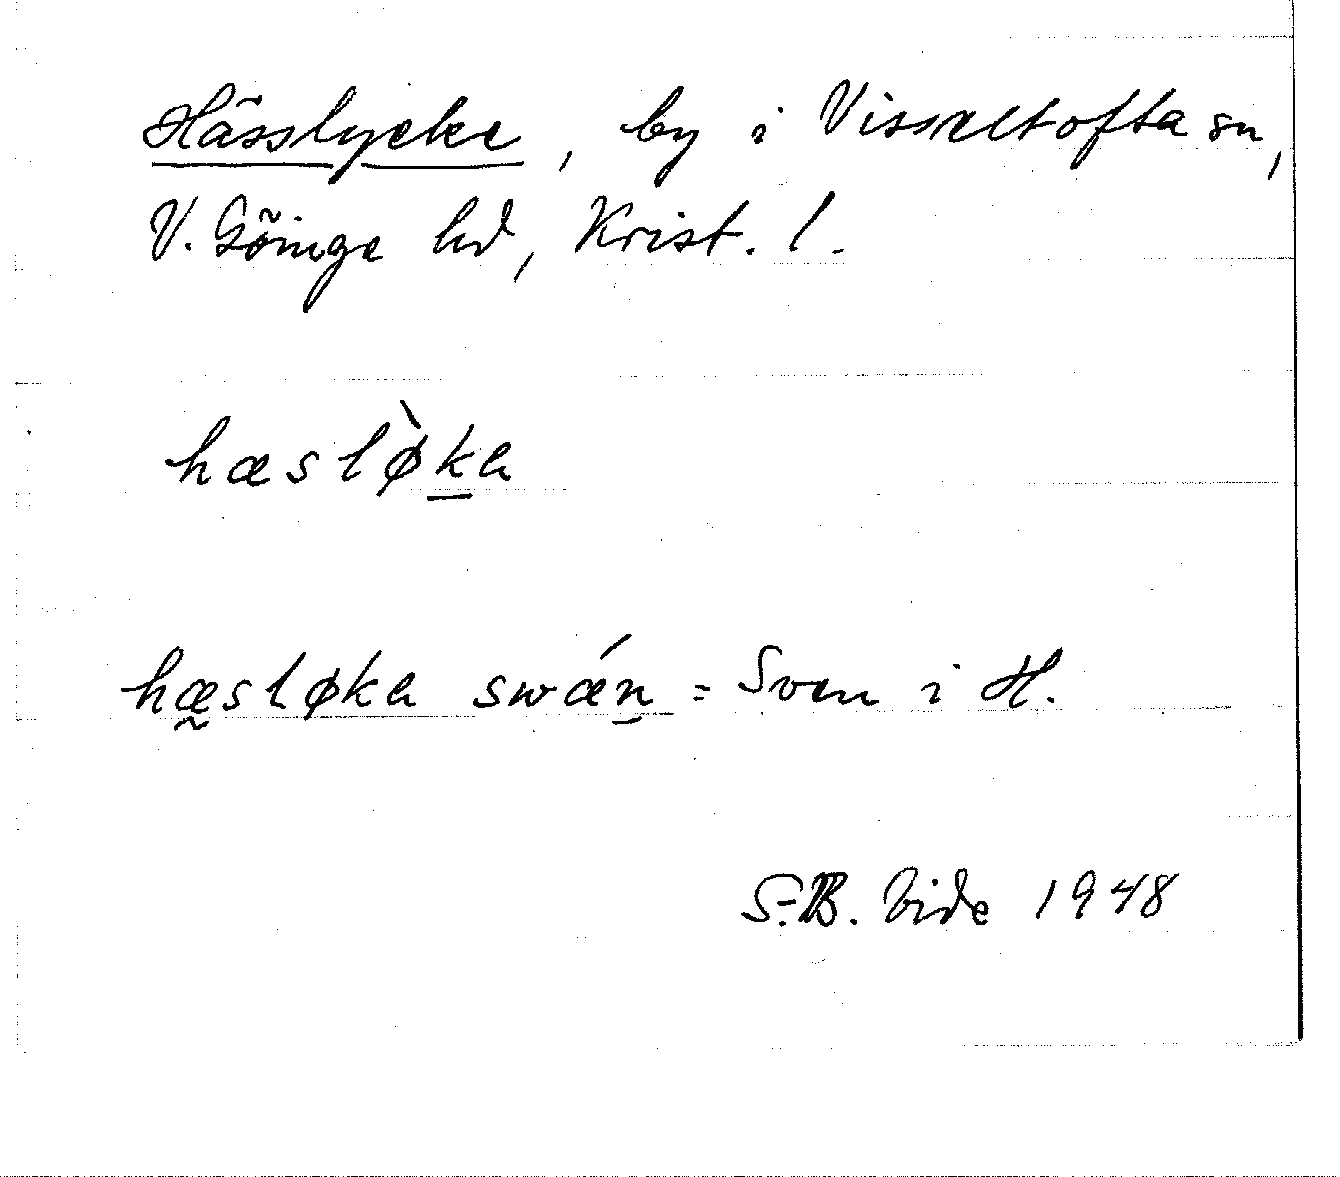 Hässlycke, by i Visseltofta sn,
V. Göinge hd, Krist. l.
hæslø̀ka
hæsløka swǽn = Sven i H.
S.-B. Vide 1948